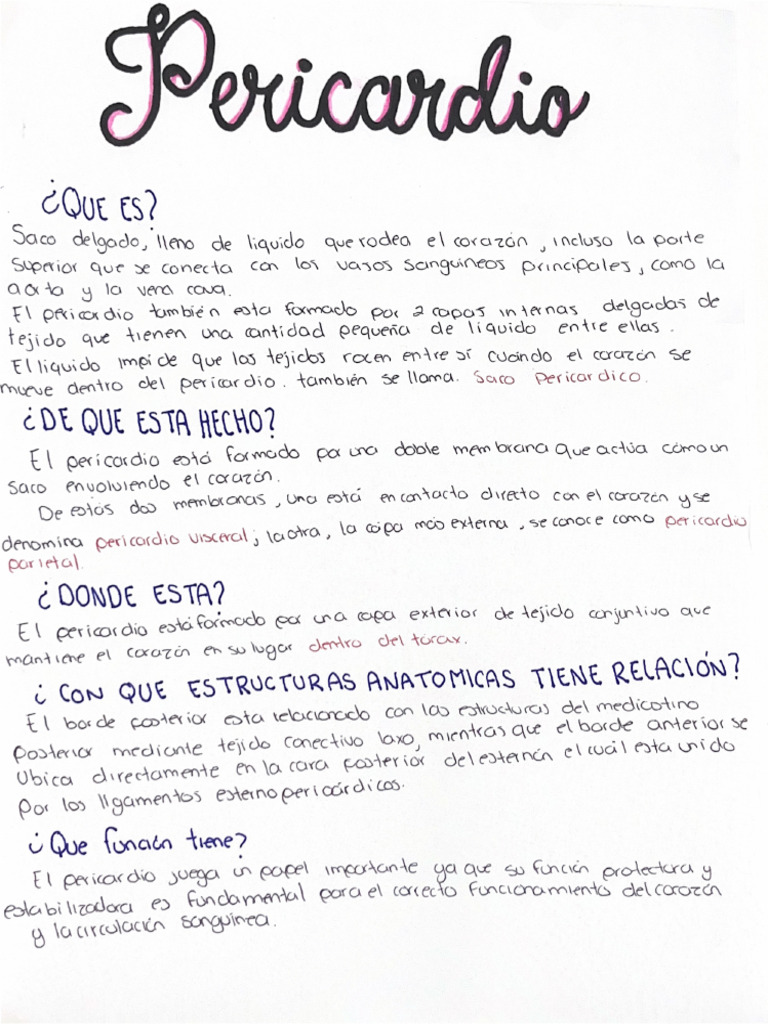 Pericardio
¿QUE ES?
Saco delgado, lleno de liquido que rodea el corazón, incluso la parte
Superior que se conecta con los vasos sanguineos principales, como la
aorta y la vena cava.
El pericardio también esta formado por 2 capas internas delgadas de
tejido que tienen una cantidad pequeña de líquido entre ellas.
El liquido impide que los tejidos rocen entre sí cuando el corazón se
mueve dentro del pericardio. también se llama. Saco Pericardico.
¿DE QUE ESTA HECHO?
El pericardio está formado por una doble membrana que actúa como un
saco envolviendo el corazón.
De estas dos membranas, una está en contacto directo con el corazón y se
denomina pericardio visceral; la otra, la capa más externa, se conoce como pericardio
parietal.
¿DONDE ESTA?
El pericardio está formado por una capa exterior de tejido conjuntivo que
mantiene el corazón en su lugar dentro del torax.
¿CON QUE ESTRUCTURAS ANATOMICAS TIENE RELACIÓN?
El borde posterior esta relacionado con las estructuras del medicotino
posterior mediante tejido conectivo laxo, mientras que el borde anterior se
Ubica directamente en la cara posterior del esternón el cuál esta unido
Por los ligamentos esternopericárdicos.
¿Que función tiene?
El pericardio juega un papel importante ya que su función protectora y
estabilizadora es fundamental para el correcto funcionamiento del corazón
y la circulación sanguinea.